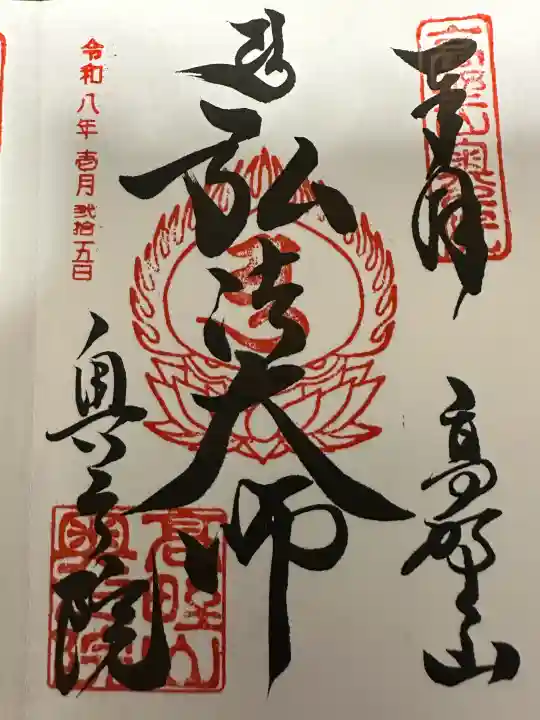 奉拝
高野山
弘法大師
奥之院
令和八年壱月弐拾五日
高野山奥之院